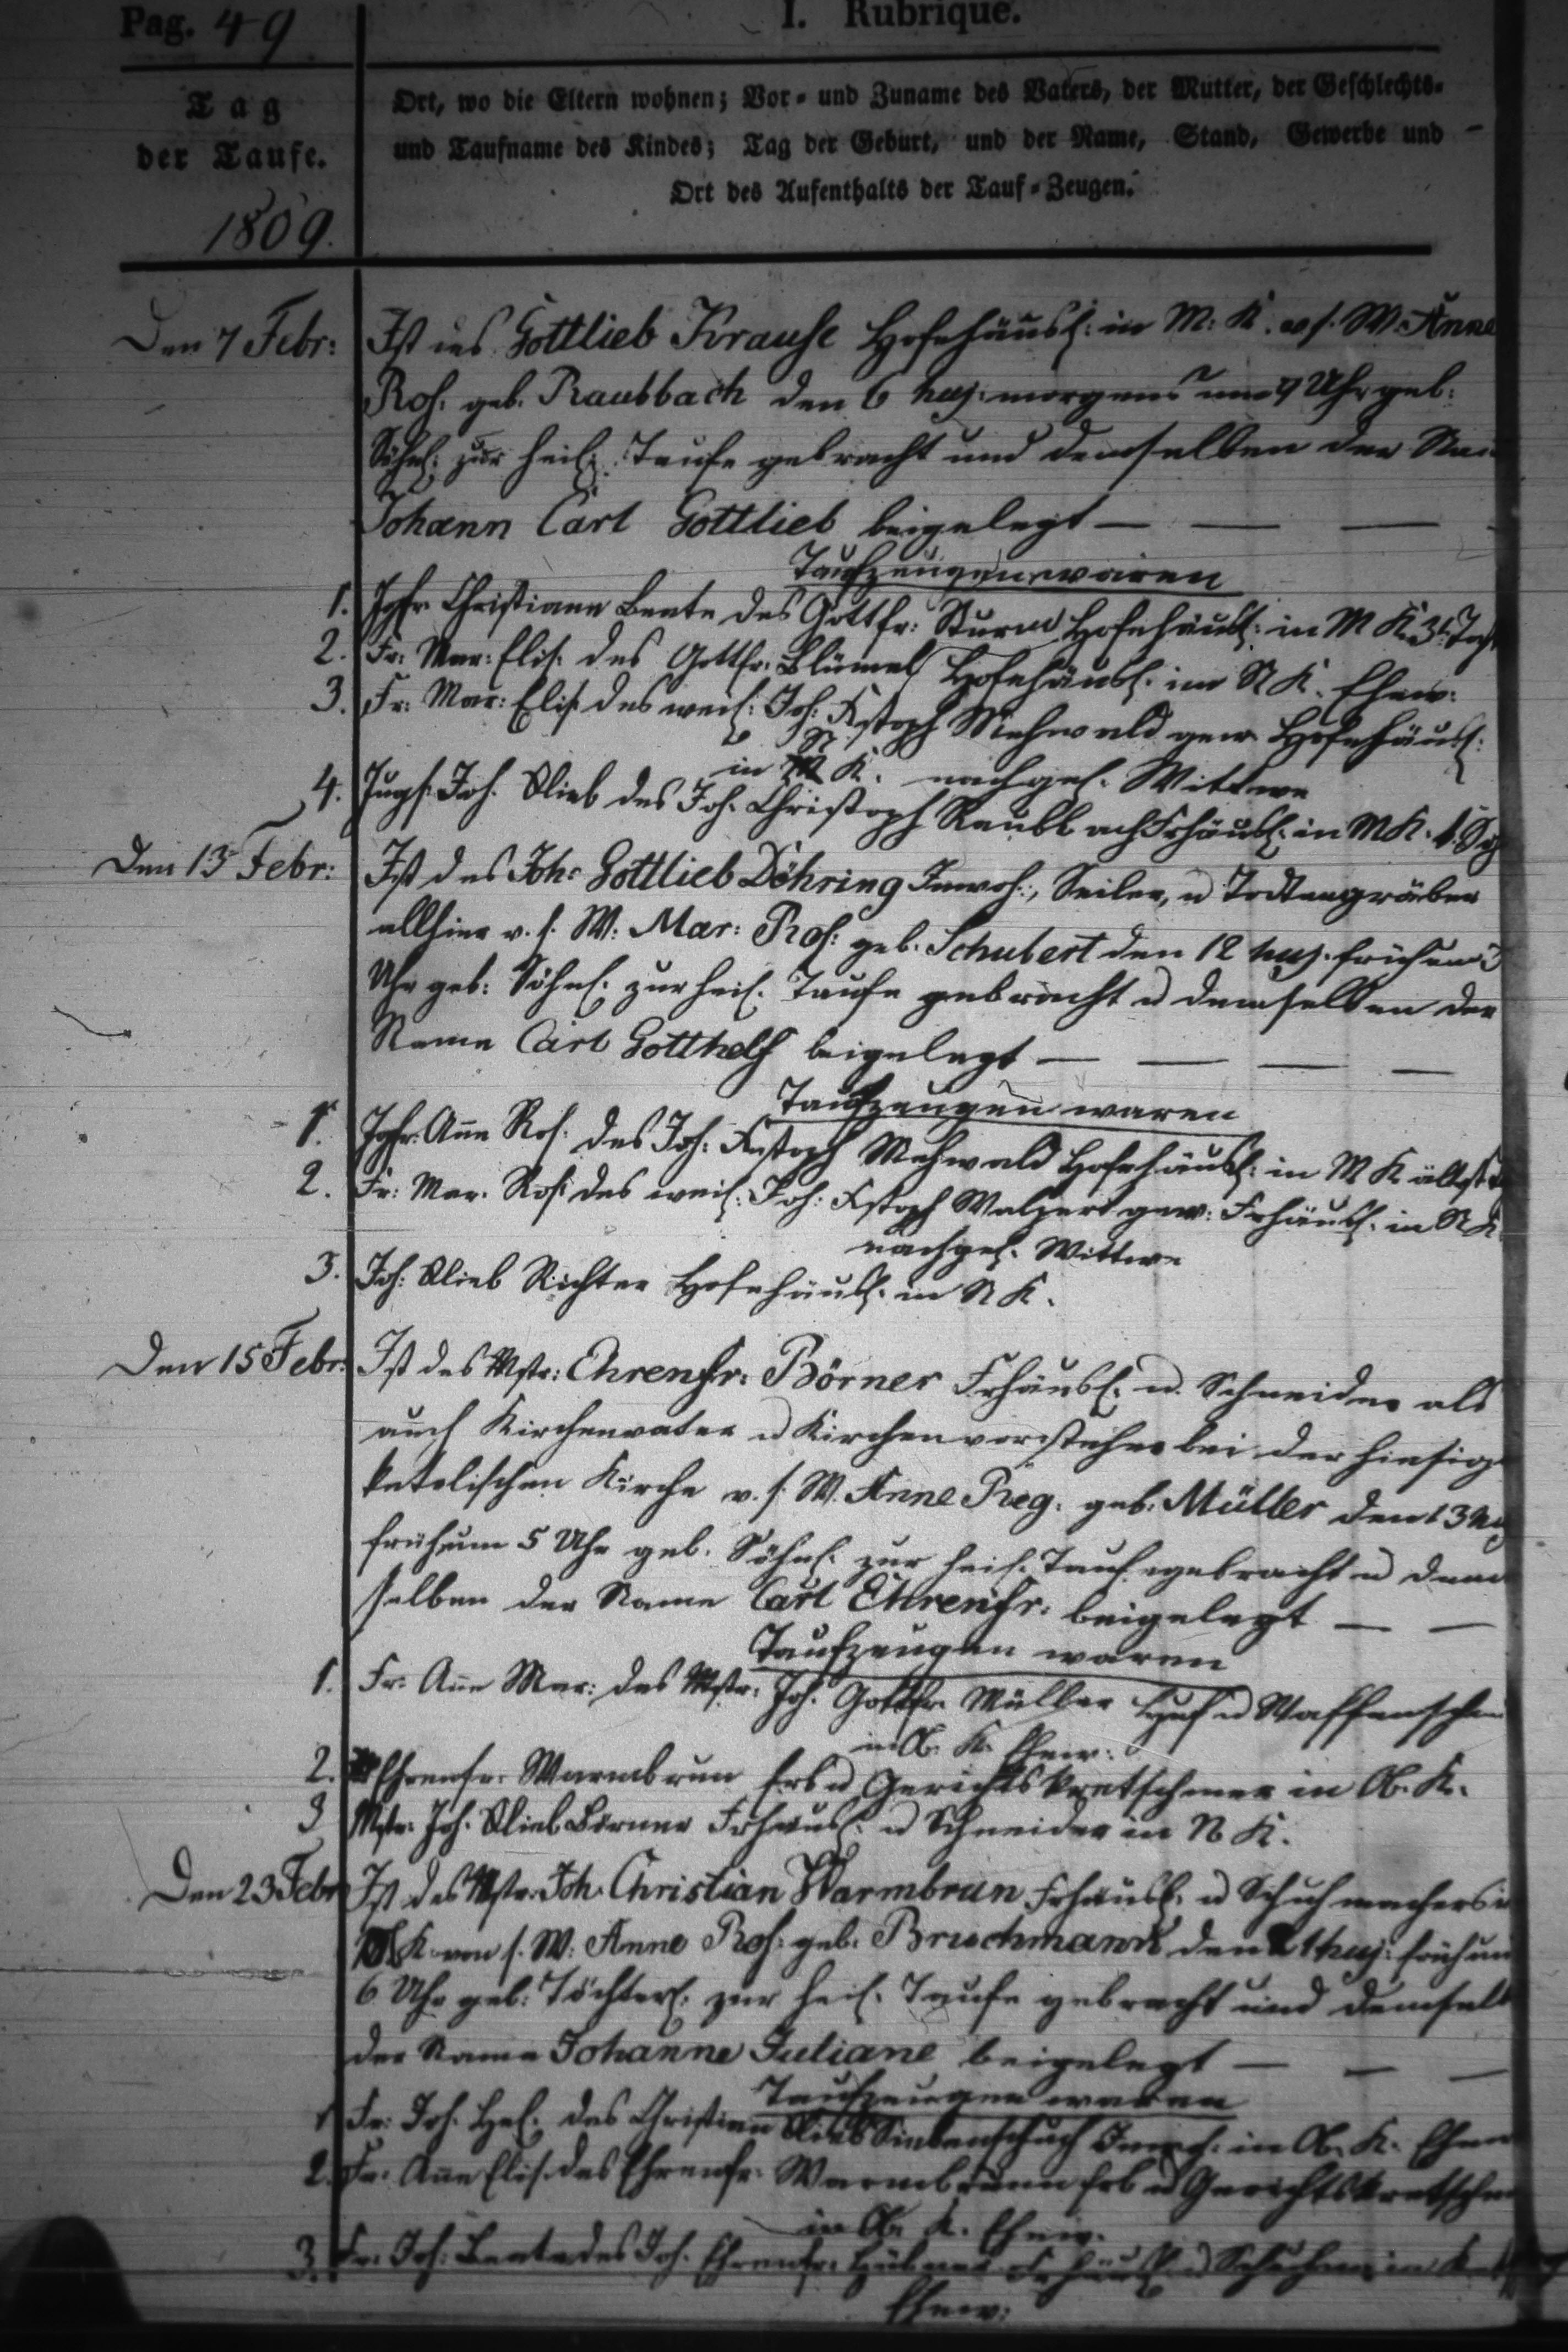 Pag. 49
I. Rubrique.
Tag
der Taufe.
1809.
Ort, wo die Eltern wohnen; Vor- und Zuname des Vaters, der Mutter, der Geschlechts-
und Taufname des Kindes; Tag der Geburt, und der Name, Stand, Gewerbe und
Ort des Aufenthalts der Tauf-Zeugen.
Den 7 Febr: Ist des Gottlieb Krause Hofehäusl: in M: K. v s. W. Anne
Ros. geb. Raubbach den 6 huj: morgens um 9 Uhr geb:
Söhnl: zur heil: Taufe gebracht und demselben der
Johann Carl Gottlieb beigelegt — — —
Taufzeugen waren
1. Jgfr. Christiane Beate des Gottfr: Sturm Hofehäusl: in M K.
2. Fr: Mar: Elis: des Gottfr: Blümel Hofehäusl: in N K. Ehew:
3. Fr: Mar: Elis. des weil: Joh: Xstoph Mehwald gew. Hofehäusl:
in N K. nachgel. Wittwe
4. Jugf. Joh. Glieb des Joh. Christoph Raubbach Frhäusl: in M K.
Den 13 Febr: Ist des Joh: Gottlieb Döhring Inwoh:, Seiler, u Todtengräber
allhier v. s. W: Mar: Ros: geb. Schubert den 12 huj. früh um 3
Uhr geb: Söhnl. zur heil. Taufe gebracht u demselben der
Name Carl Gotthelf beigelegt — — — —
Taufzeugen waren
1. Jgfr. Ane Ros. des Joh: Xstoph Mehwald Hofehäusl: in M K
2. Fr: Mar. Ros: des weil: Joh: Xstoph Walpert gew: Frhäusl. in N K.
nachgel. Wittwe
3. Joh: Glieb Richter Hofehäusl. in N K.
Den 15 Febr: Ist des Mstr: Ehrenfr: Börner Frhäusl. u. Schneider als
auch Kirchenvater u Kirchenvorsteher bei der hiesig
katolischen Kirche v. s. W. Anne Reg. geb. Müller den 13
früh um 5 Uhr geb. Söhnl. zur heil. Taufe gebracht u dem
selben der Name Carl Ehrenfr: beigelegt — —
Taufzeugen waren
1. Fr: Ane Mar: des Mstr: Joh. Gottfr. Müller Huf u Waffenschm
in Ob. K. Ehew:
2. Ehrenfr: Warmbrun Erb u Gerichtskretschmer in Ob. K.
3 Mstr: Joh. Glieb Börner Frhäusl. u Schneider in N K.
Den 23 Febr Ist des Mstr. Joh. Christian Warmbrun Frhäusl. u Schuhmachers
K. von s. W: Anne Ros: geb. Bruchmann den 21 huj: früh um
6 Uhr geb: Töchterl: zur heil. Taufe gebracht und demselb
der Name Johanne Juliane beigelegt — — —
Taufzeugen waren
1 Fr: Joh. Hel. des Christian Glieb Siebenschuch Inwoh: in Ob. K. Ehew
2. Fr: Ane Elis. des Ehrenfr: Warmbrunn Erb u Gerichtskretschm
in Ob. K. Ehew.
3. Fr: Joh: Beate des Joh. Ehrenfr: Hübner Frhäusl. u Schuhm. in
Ehew: